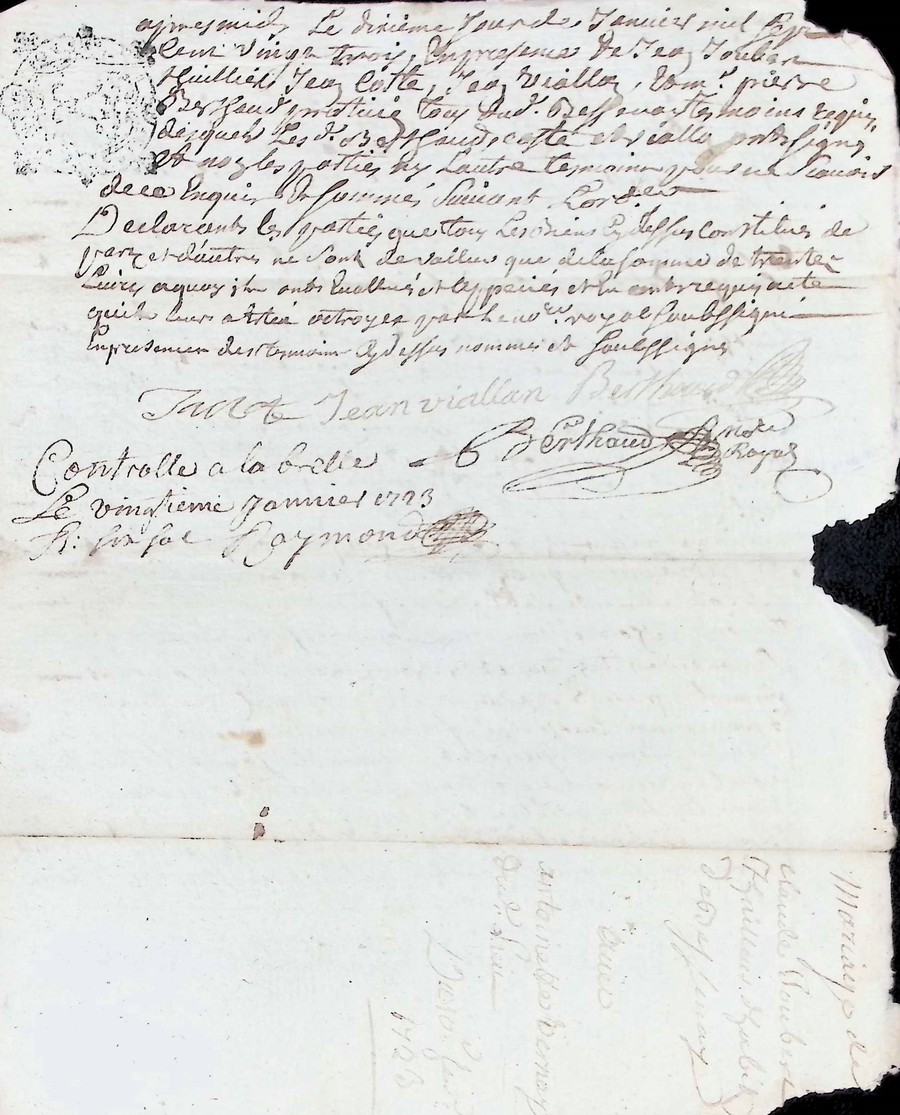 apres midy Le dixieme Jour de Janvier mil sept
Cent vingt trois, En presence de Jean Joubert
thuillier, Jean Cotte, Jean viallan, Et mr. pierre
Berthaud praticien tous dud. Bessenay temoins requis
desquels Lesd. Berthaud cotte et viallan ont signé
Et non les parties ny Lautre temoin pour ne scavoir
de ce Enquis Et sommés suivant Lord.ce
Declarants les parties que tous Les biens Cy dessus constitués de
part et d'autres ne sont de valleur que de la somme de trente
Livres a quoy ils onts Evallués et apreciés et en ont requis acte
qui leurs a esté octroyer par le no.re royal soubssigné
En presence des temoins Cy dessus nommes et soubssignes
Jean viallan Berthaud
Berthaud no.re Royal
Controlle a la brelle
Le vingtieme Janvier 1723
R: six sol Raymond
Mariage de
claude Joubert
Thuillier habit
de Bessenay
avec
antoinette vernay
dud. lieu
Du 10 Janvier
1723